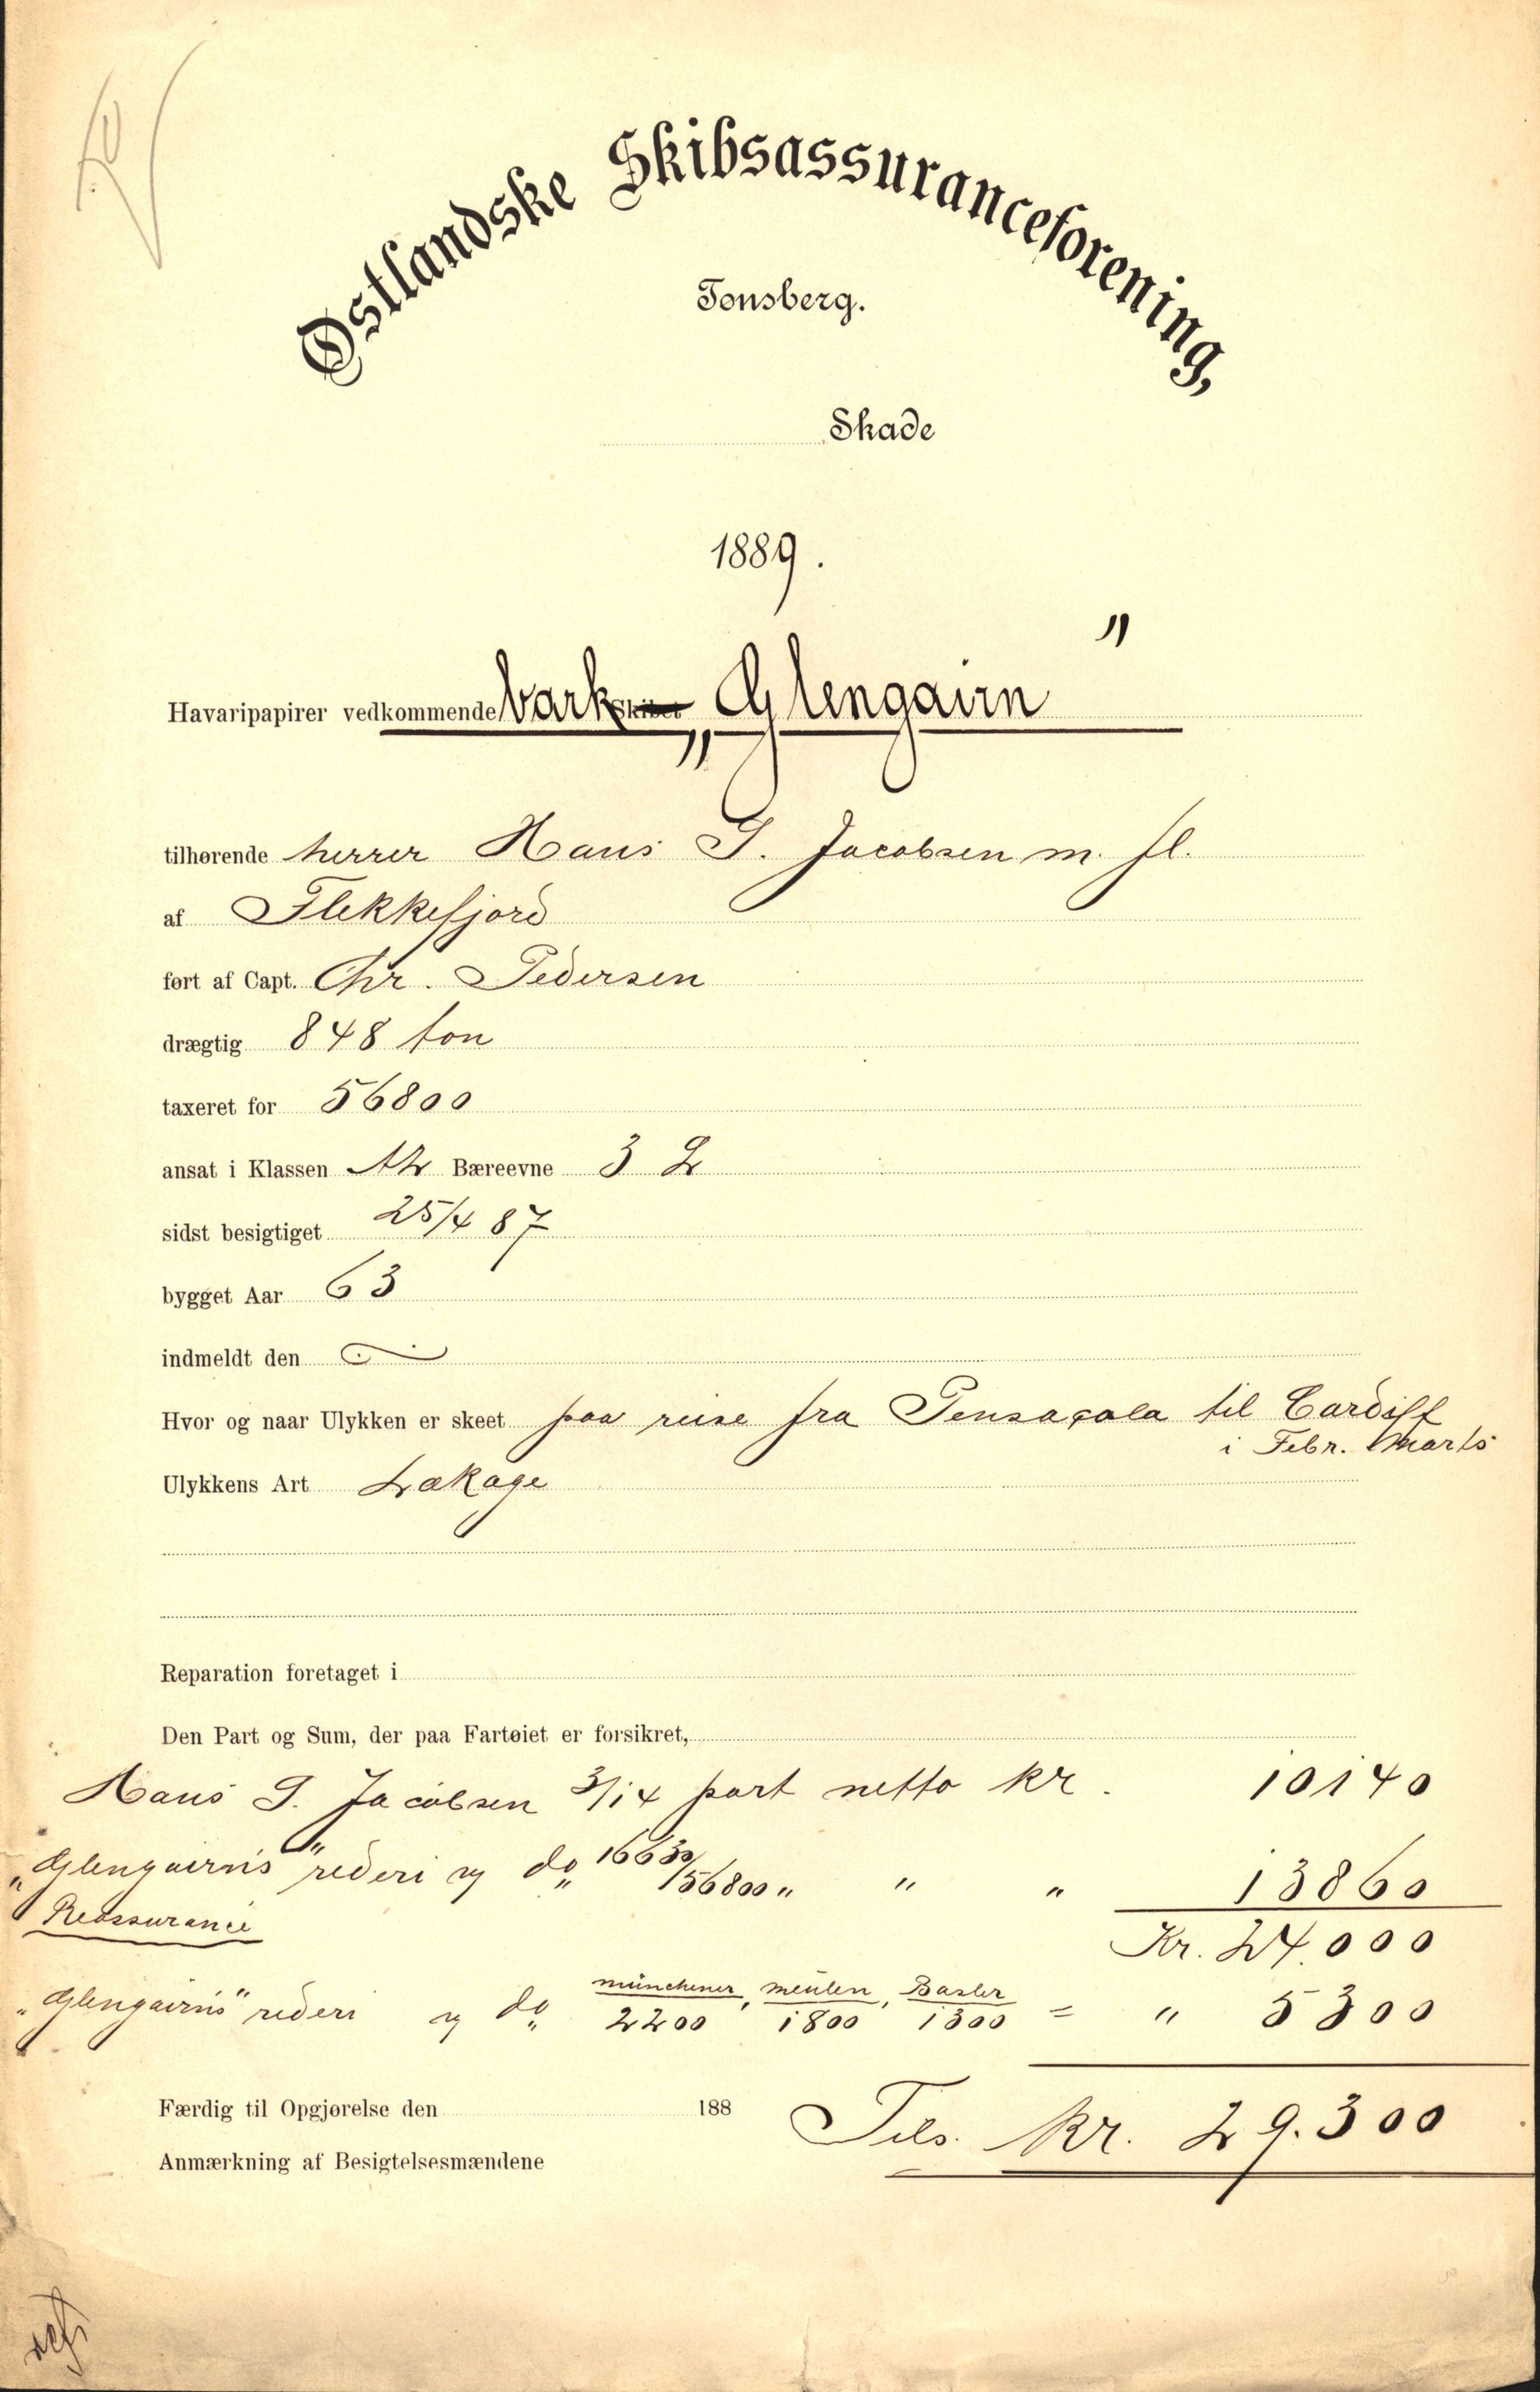 Østlandske Skibsassuranceforening,
Tønsberg.
Skade
1889.
Havaripapirer vedkommende bark Skibet „Glengairn"
tilhørende herrer Hans G. Jacobsen m. fl.
af Flekkefjord
ført af Capt. Chr. Pedersen
drægtig 848 ton
taxeret for 56800
ansat i Klassen A2 Bæreevne 3 L
sidst besigtiget 25/4 87
bygget Aar 63
indmeldt den
Hvor og naar Ulykken er skeet paa reise fra Pensacola til Cardiff
i Febr. Marts
Ulykkens Art Lækage
Reparation foretaget i
Den Part og Sum, der paa Fartøiet er forsikret,
Hans G. Jacobsen 3/14 part netto kr. 10140
„Glengairns" rederi og do 16630/56800 " " " 13860
Kr. 24.000
Reassurance
„Glengairns" rederi og do münchener 2200, meulen 1800, Basler 1300 = " 5300
Tils. kr. 29.300
Færdig til Opgjørelse den 188
Anmærkning af Besigtelsesmændene